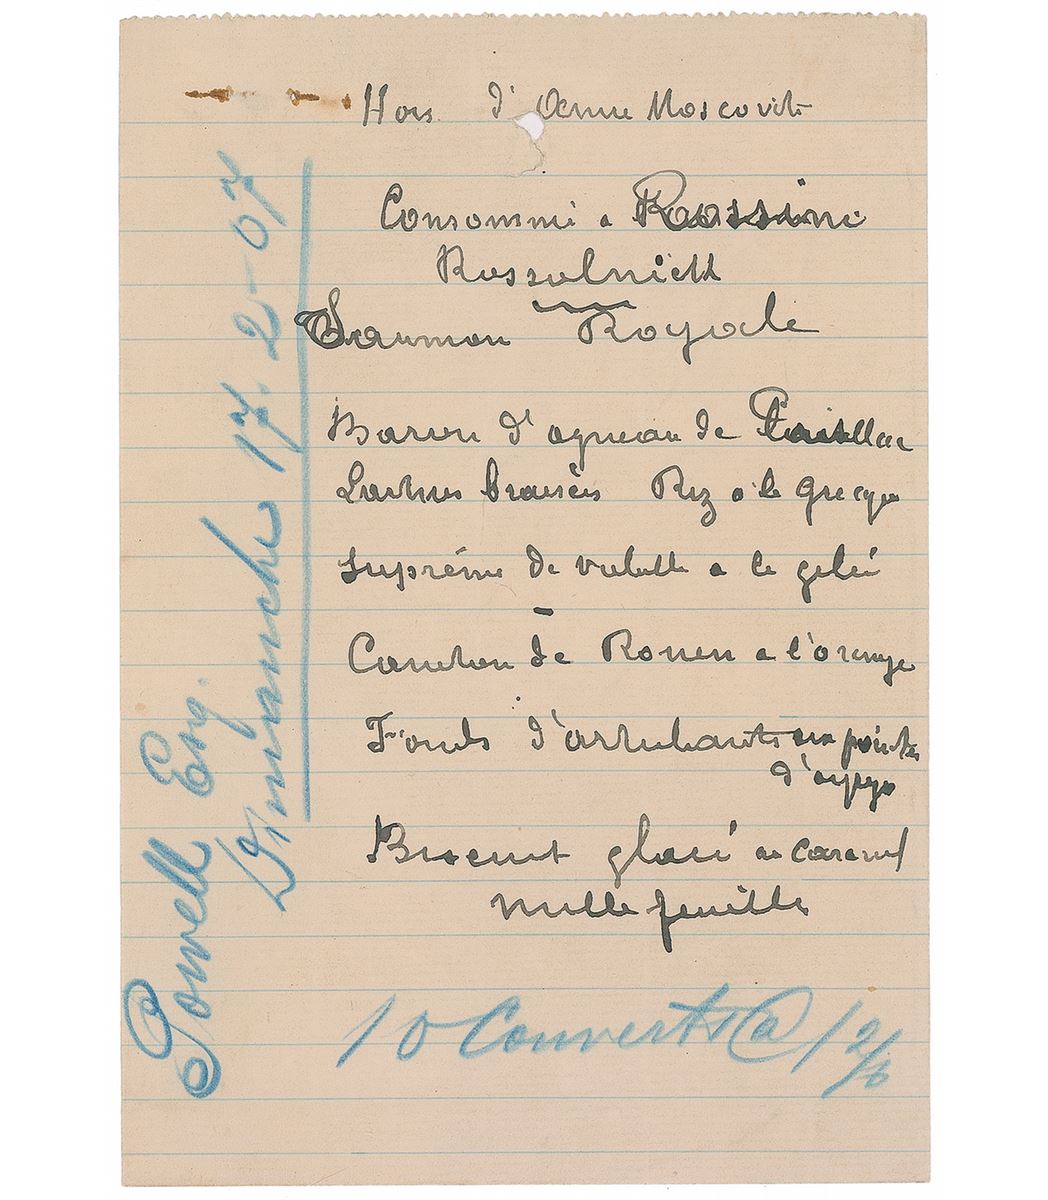 Hors d'Oeuvre Moscovite
Consommé a Rossini
Rossolnick
Saumon Royale
Baron d'agneau de Pauillac
Laitues braisées Riz a la Grecque
Suprême de volaille a la gelée
Caneton de Rouen a l'orange
Fonds d'artichauts aux pointes
d'asperges
Biscuit glacé au caramel
Mille feuille
10 Couverts @ 12/6
Powell Esq.
Dimanche 17.2-07